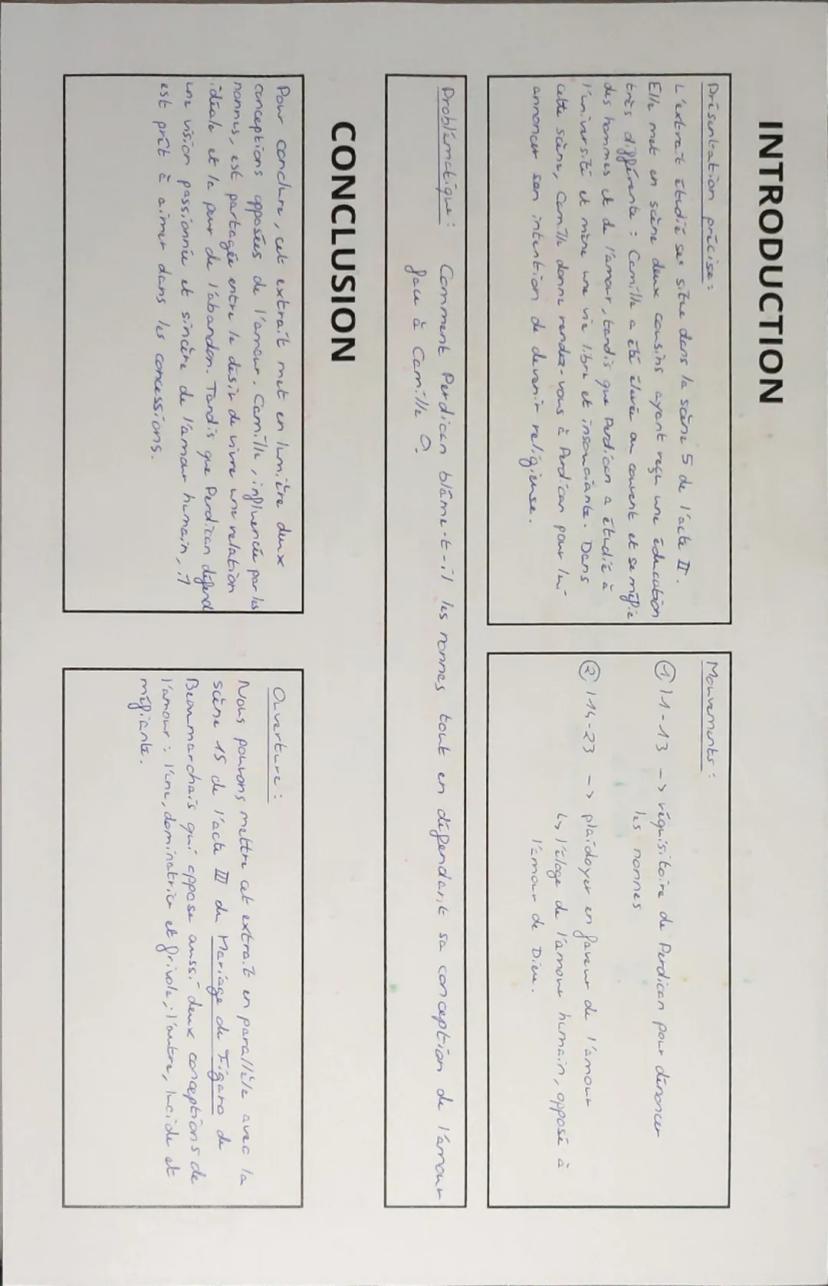 INTRODUCTION
Présentation précise :
L'extrait étudié ses situe dans la scène 5 de l'acte II.
Elle met en scène deux cousins ayant reçu une éducation
très différente : Camille a été élevée au couvent et se méfie
des hommes et de l'amour, tandis que Perdican a étudié à
l'université et mène une vie libre et insouciante. Dans
cette scène, Camille donne rendez-vous à Perdican pour lui
annoncer son intention de devenir religieuse.
Mouvements :
① l1-13 -> réquisitoire de Perdican pour dénoncer
les nonnes
② l14-23 -> plaidoyer en faveur de l'amour
↳ l'éloge de l'amour humain, opposé à
l'amour de Dieu.
Problématique : Comment Perdican blâme-t-il les nonnes tout en défendant sa conception de l'amour
face à Camille ?
CONCLUSION
Pour conclure, cet extrait met en lumière deux
conceptions opposées de l'amour. Camille, influencée par les
nonnes, est partagée entre le désir de vivre une relation
idéale et la peur de l'abandon. Tandis que Perdican défend
une vision passionnée et sincère de l'amour humain, il
est prêt à aimer dans les concessions.
Ouverture :
Nous pouvons mettre cet extrait en parallèle avec la
scène 15 de l'acte III du Mariage de Figaro de
Beaumarchais qui oppose aussi deux conceptions de
l'amour : l'une, dominatrice et frivole ; l'autre, lucide et
méfiante.